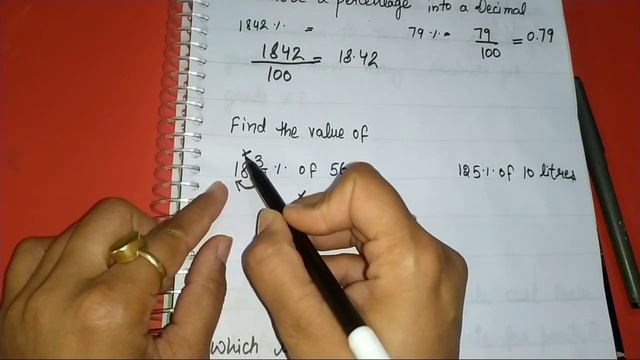 a percentage into a Decimal
1842 % =
1842/100 = 18.42
79 % = 79/100 = 0.79
Find the value of
% of 56
125 % of 10 litres
which